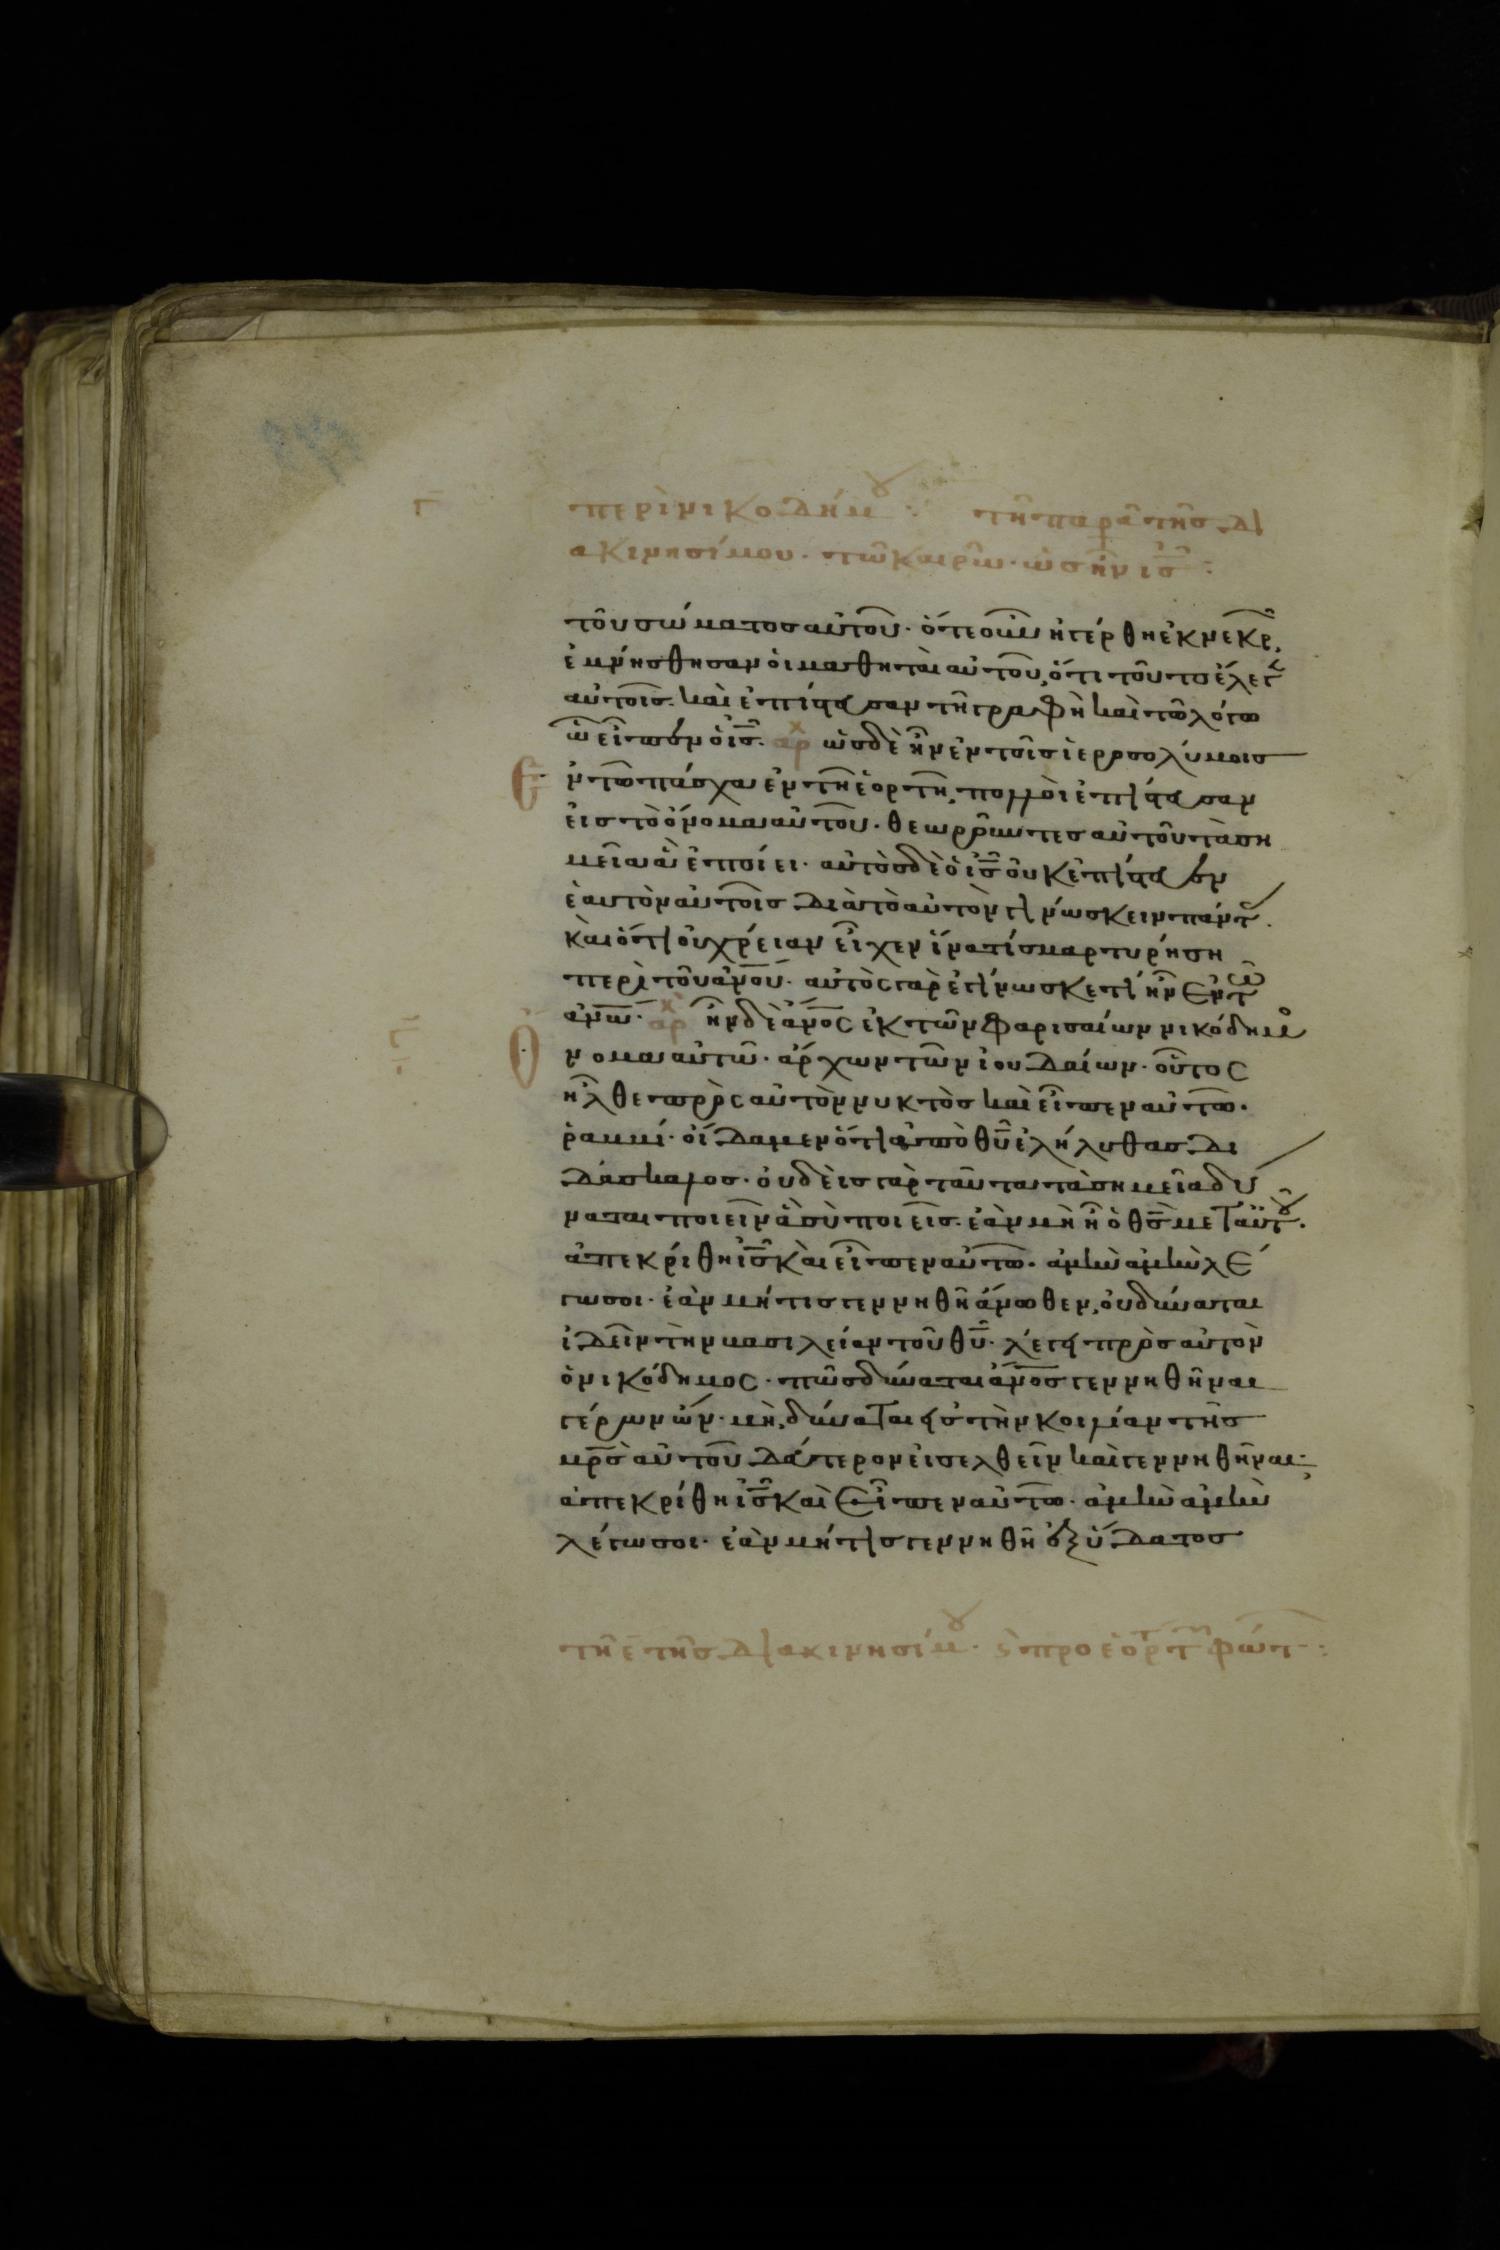 γ περὶ νικοδήμου: τῆ παρα τῆς δι
ακινησίμου· τῶ καιρῶ· ὡς ἦν ις:
τοῦ σώματος αὐτοῦ· ὅτε οὖν ἠγέρθη ἐκ νεκρ,
ἐμνήσθησαν οἱ μαθηταὶ αὐτοῦ, ὅτι τοῦτο ἔλεγ
αὐτοῖς· καὶ ἐπίστευσαν τῆ γραφῆ καὶ τῶ λόγω
ὧ εἶπεν ὁ ἰς· αρχ ὡς δὲ ἦν ἐν τοῖς ἱεροσολύμοις
Ἐν τῶ πάσχα ἐν τῆ ἑορτῆ, πολλοὶ ἐπίστευσαν
εἰς τὸ ὄνομα αὐτοῦ· θεωροῦντες αὐτοῦ τὰ ση
μεῖα ἃ ἐποίει· αὐτὸς δὲ ὁ ἰς οὐκ ἐπίστευσεν
ἑαυτὸν αὐτοῖς διὰ τὸ αὐτὸν γινώσκειν πάντ·
καὶ ὅτι οὐ χρείαν εἶχεν ἵνα τίς μαρτυρήση
περὶ τοῦ ἀνου· αὐτὸς γὰρ ἐγίνωσκε τί ἦν ἐν τῶ
ἀνω· αρχ ἦν δὲ ἀνος ἐκ τῶν φαρισαίων νικόδημο
Ὄνομα αὐτῶ· ἄρχων τῶν ἰουδαίων· οὗτος
ἦλθε πρὸς αὐτὸν νυκτὸς καὶ εἶπεν αὐτῶ·
ῥαββί· οἴδαμεν ὅτι ἀπὸ θυ ἐλήλυθας δι
δάσκαλος· οὐδεὶς γὰρ ταῦτα τὰ σημεῖα δύ
ναται ποιεῖν ἃ σὺ ποιεῖς· ἐὰν μὴ ἦ ὁ θς μετ αὐτοῦ·
ἀπεκρίθη ἰς καὶ εἶπεν αὐτῶ· ἀμὴν ἀμὴν λέ
γω σοι· ἐὰν μή τις γεννηθῆ ἄνωθεν, οὐ δύναται
ἰδεῖν τὴν βασιλείαν τοῦ θυ· λέγει πρὸς αὐτὸν
ὁ νικόδημος· πῶς δύναται ἀνος γεννηθῆναι
γέρων ὤν· μὴ, δύναται εἰς τὴν κοιλίαν τῆς
μρς αὐτοῦ δεύτερον εἰσελθεῖν καὶ γεννηθῆναι;
ἀπεκρίθη ἰς καὶ εἶπεν αὐτῶ· ἀμὴν ἀμὴν
λέγω σοι· ἐὰν μή τις γεννηθῆ ἐξ ὕδατος
τῆ ε τῆς διακινησίμου· ς προεόρτ τ φώτ: